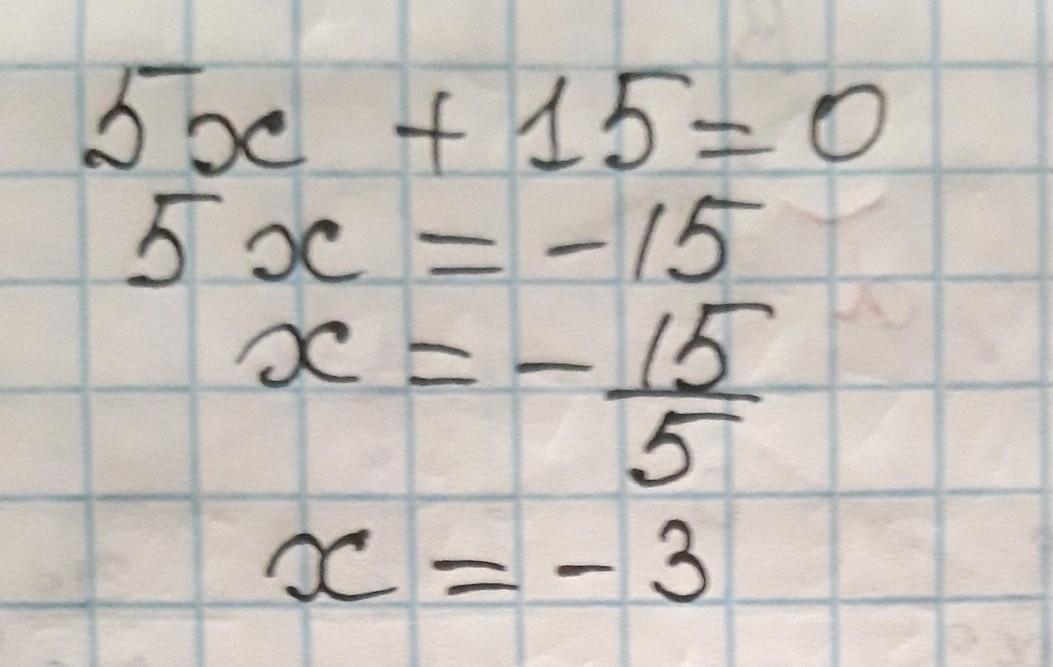 5x + 15 = 0
5x = -15
x = - 15/5
x = -3